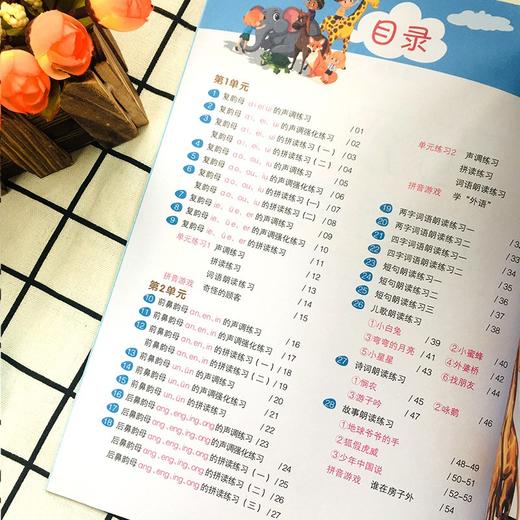 目录
第1单元
1 复韵母 ai ei ui 的声调练习 /01
2 复韵母 ai、ei、ui 的声调强化练习 /02
3 复韵母 ai、ei、ui 的拼读练习（一） /03
复韵母 ai、ei、ui 的拼读练习（二） /04
4 复韵母 ao、ou、iu 的声调练习 /05
5 复韵母 ao、ou、iu 的声调强化练习 /06
6 复韵母 ao、ou、iu 的拼读练习（一） /07
复韵母 ao、ou、iu 的拼读练习（二） /08
7 复韵母 ie、üe、er 的声调练习 /09
8 复韵母 ie、üe、er 的声调强化练习 /10
9 复韵母 ie、üe、er 的拼读练习 /11
单元练习1 声调练习 /12
拼读练习 /13
词语朗读练习 /14
拼音游戏 奇怪的顾客 /15
第2单元
10 前鼻韵母 an,en,in 的声调练习 /16
11 前鼻韵母 an,en,in 的声调强化练习 /17
12 前鼻韵母 an,en,in 的拼读练习（一） /18
前鼻韵母 an,en,in 的拼读练习（二） /19
13 前鼻韵母 un,ün 的声调练习 /20
14 前鼻韵母 un,ün 的声调强化练习 /21
15 前鼻韵母 un,ün 的拼读练习 /22
16 后鼻韵母 ang,eng,ing,ong 的声调练习 /23
17 后鼻韵母 ang,eng,ing,ong 的声调强化练习 /24
18 后鼻韵母 ang,eng,ing,ong 的拼读练习（一） /25
后鼻韵母 ang,eng,ing,ong 的拼读练习（二） /26
后鼻韵母 ang,eng,ing,ong 的拼读练习（三） /27
单元练习2 声调练习
拼读练习
词语朗读练习
拼音游戏 学“外语”
19 两字词语朗读练习一
20 两字词语朗读练习二
21 四字词语朗读练习一
22 四字词语朗读练习二
23 短句朗读练习一
24 短句朗读练习二
25 短句朗读练习三
26 儿歌朗读练习
①小白兔 /39 ②小蜜蜂 /40
③弯弯的月亮 /41 ④外婆桥 /42
⑤小星星 /43 ⑥找朋友 /44
27 诗词朗读练习
①悯农 /45 ②咏鹅 /46
③游子吟 /47
28 故事朗读练习
①地球爷爷的手 /48-49
②狐假虎威 /50-51
③少年中国说 /52-53
拼音游戏 谁在房子外 /54